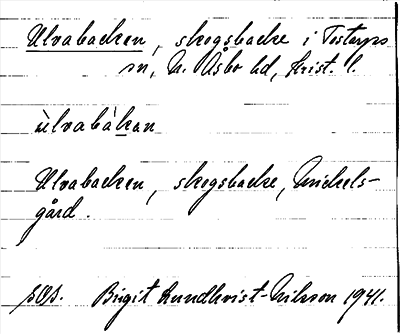 Ulvabacken, skogsbacke i Tostarps
sn, N. Åsbo hd, Krist. l.
ùlvabàkan
Ulvabacken, skogsbacke, Mickels-
gård.
sOs. Birgit Lundkvist-Nilsson 1941.